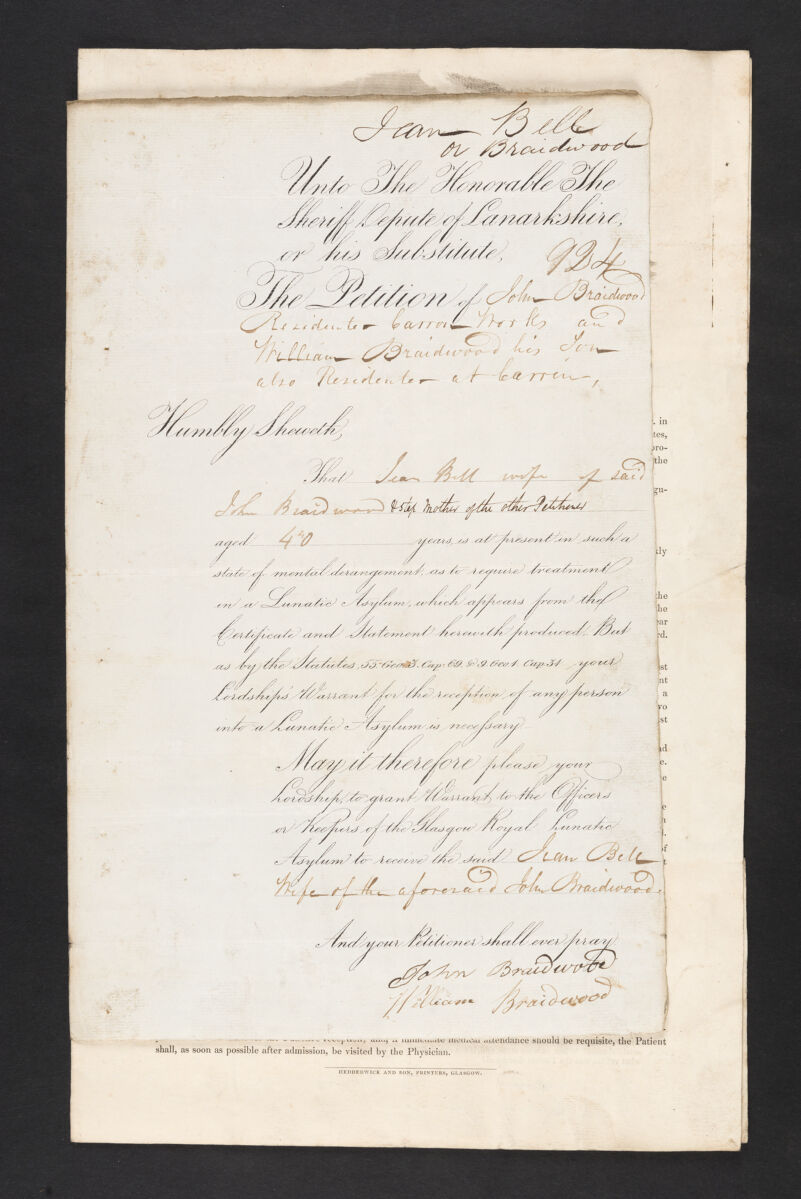 Jean Bell
or Braidwood
Unto The Honorable The
Sheriff Depute of Lanarkshire,
or his Substitute,
924
The Petition of John Braidwood
Residenter Carron Works and
William Braidwood his Son
also Residenter at Carron,
Humbly Sheweth,
That Jean Bell wife of said
John Braidwood & Mother of the other Petitioner
aged 40 years, is at present in such a
state of mental derangement, as to require treatment
in a Lunatic Asylum, which appears from the
Certificate and Statement herewith produced. But
as by the Statutes, 55 Geo 3. Cap. 69 & 9 Geo 4 Cap 34 your
Lordship's Warrant for the reception of any person
into a Lunatic Asylum is necessary
May it therefore please your
Lordship, to grant Warrant, to the Officers
or Keepers of the Glasgow Royal Lunatic
Asylum to receive the said Jean Bell
Wife of the aforesaid John Braidwood
And your Petitioner shall ever pray
John Braidwood
William Braidwood
reception; and, if immediate medical attendance should be requisite, the Patient
shall, as soon as possible after admission, be visited by the Physician.
HEDDERWICK AND SON, PRINTERS, GLASGOW.